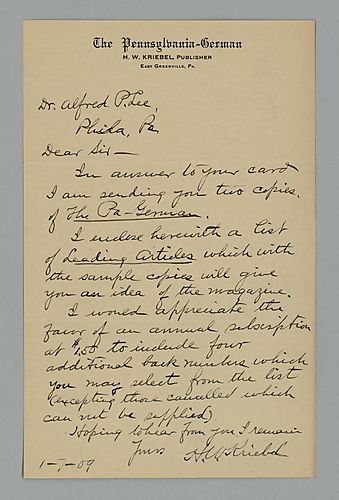 The Pennsylvania-German
H. W. KRIEBEL, PUBLISHER
EAST GREENVILLE, PA.
Dr. Alfred P. Lee,
Phila, Pa
Dear Sir—
In answer to your card
I am sending you two copies
of The Pa-German.
I enclose herewith a list
of Leading Articles which with
the sample copies will give
you an idea of the magazine.
I would appreciate the
favor of an annual subscription
at $1.50 to include four
additional back numbers which
you may select from the list
(excepting those cancelled which
can not be supplied)
Hoping to hear from you I remain
Yours
H W Kriebel
1-7-09